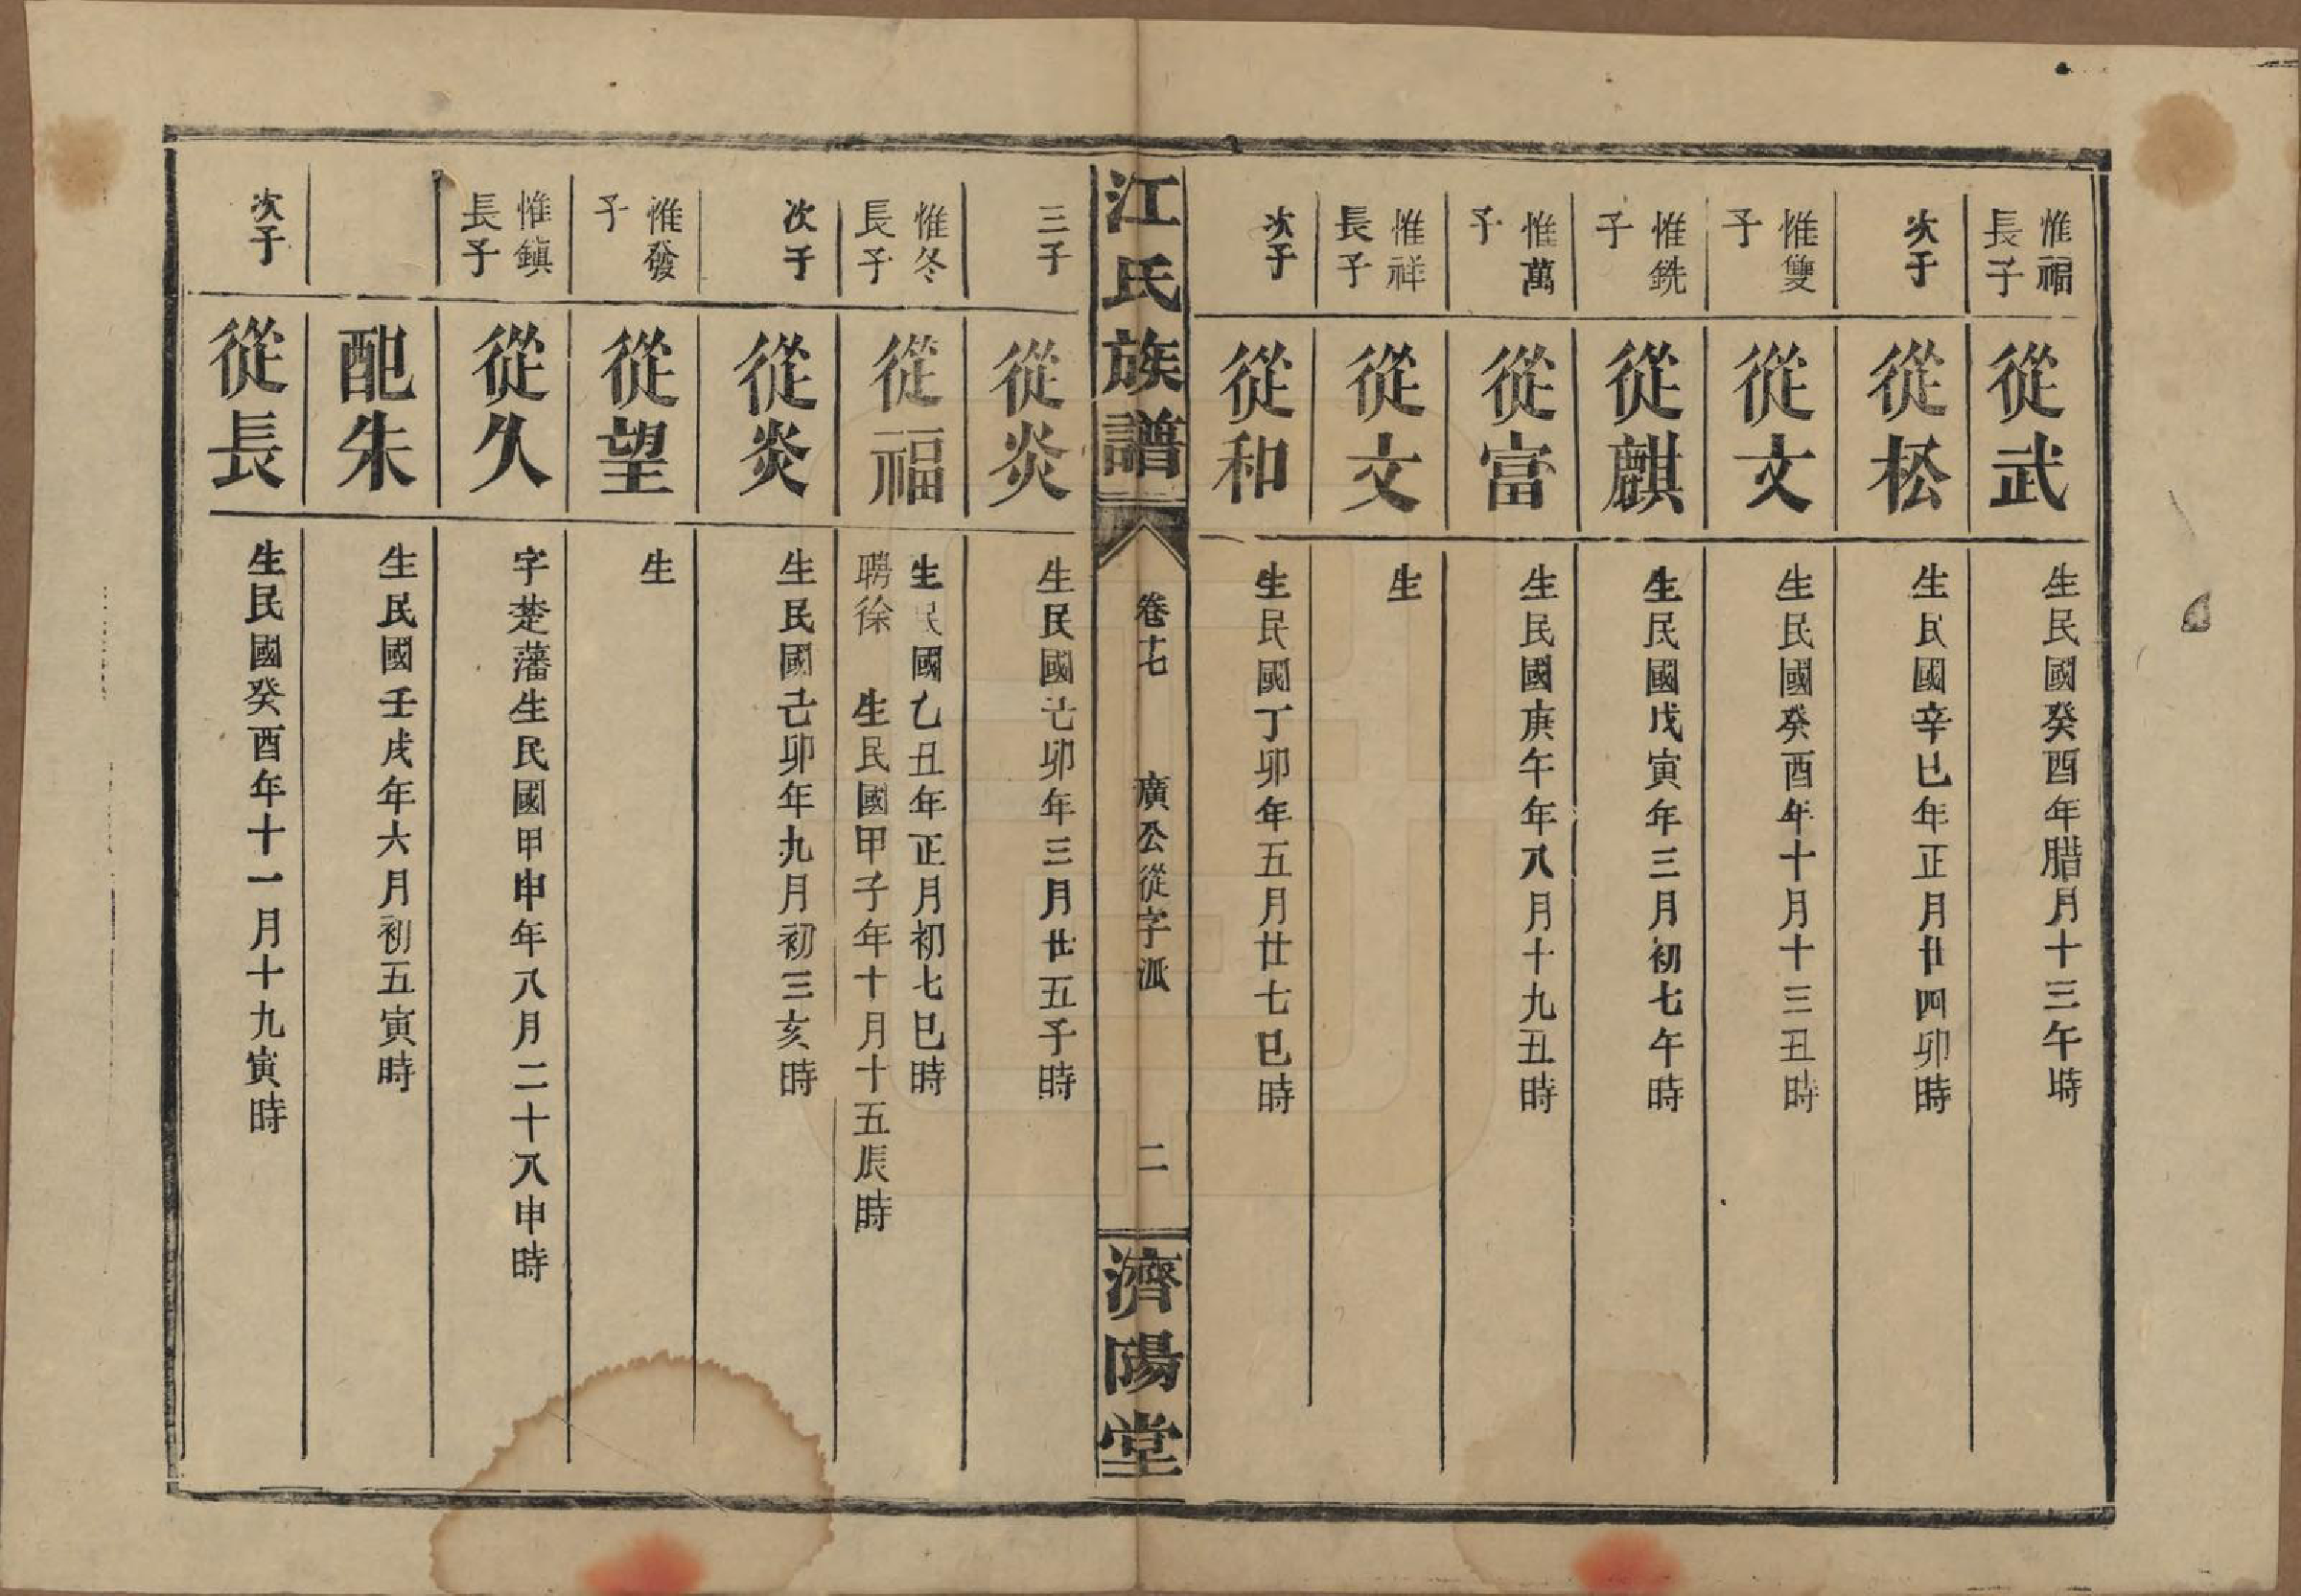 惟福
長子
從武
生民國癸酉年腊月十三午時
次子
從松
生民國辛巳年正月廿四卯時
惟雙
子
從文
生民國癸酉年十月十三丑時
惟銑
子
從麒
生民國戊寅年三月初七午時
惟萬
子
從富
生民國庚午年八月十九丑時
惟祥
長子
從文
生
次子
從和
生民國丁卯年五月廿七巳時
江氏族譜
卷十七
廣公從字派
二
濟陽堂
三子
從炎
生民國己卯年三月廿五子時
惟冬
長子
從福
生民國乙丑年正月初七巳時
聘徐 生民國甲子年十月十五辰時
次子
從炎
生民國己卯年九月初三亥時
惟發
子
從望
生
惟鎮
長子
從久
字楚藩生民國甲申年八月二十八申時
配朱
生民國壬戌年六月初五寅時
次子
從長
生民國癸酉年十一月十九寅時